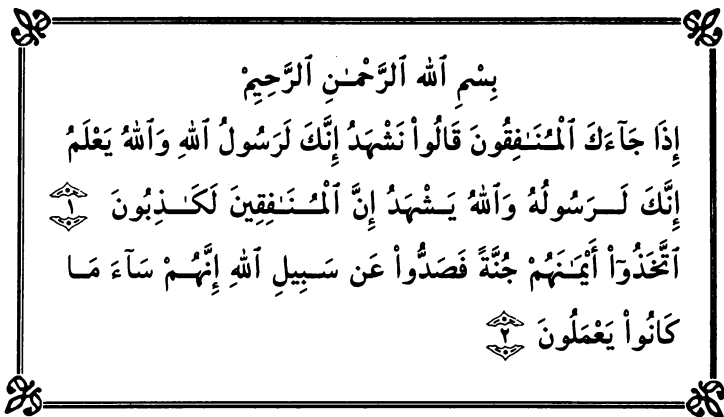 بِسْمِ ٱللهِ ٱلرَّحْمَـٰنِ ٱلرَّحِيمِ
إِذَا جَآءَكَ ٱلْمُنَـٰفِقُونَ قَالُوا۟ نَشْهَدُ إِنَّكَ لَرَسُولُ ٱللهِ وَٱللهُ يَعْلَمُ
إِنَّكَ لَـرَسُولُهُ وَٱللهُ يَـشْهَدُ إِنَّ ٱلْمُنَـٰفِقِينَ لَكَـٰذِبُونَ ١
ٱتَّخَذُوٓا۟ أَيْمَـٰنَهُمْ جُنَّةً فَصَدُّوا۟ عَن سَـبِيلِ ٱللهِ إِنَّهُـمْ سَآءَ مَـا
كَانُوا۟ يَعْمَلُونَ ٢